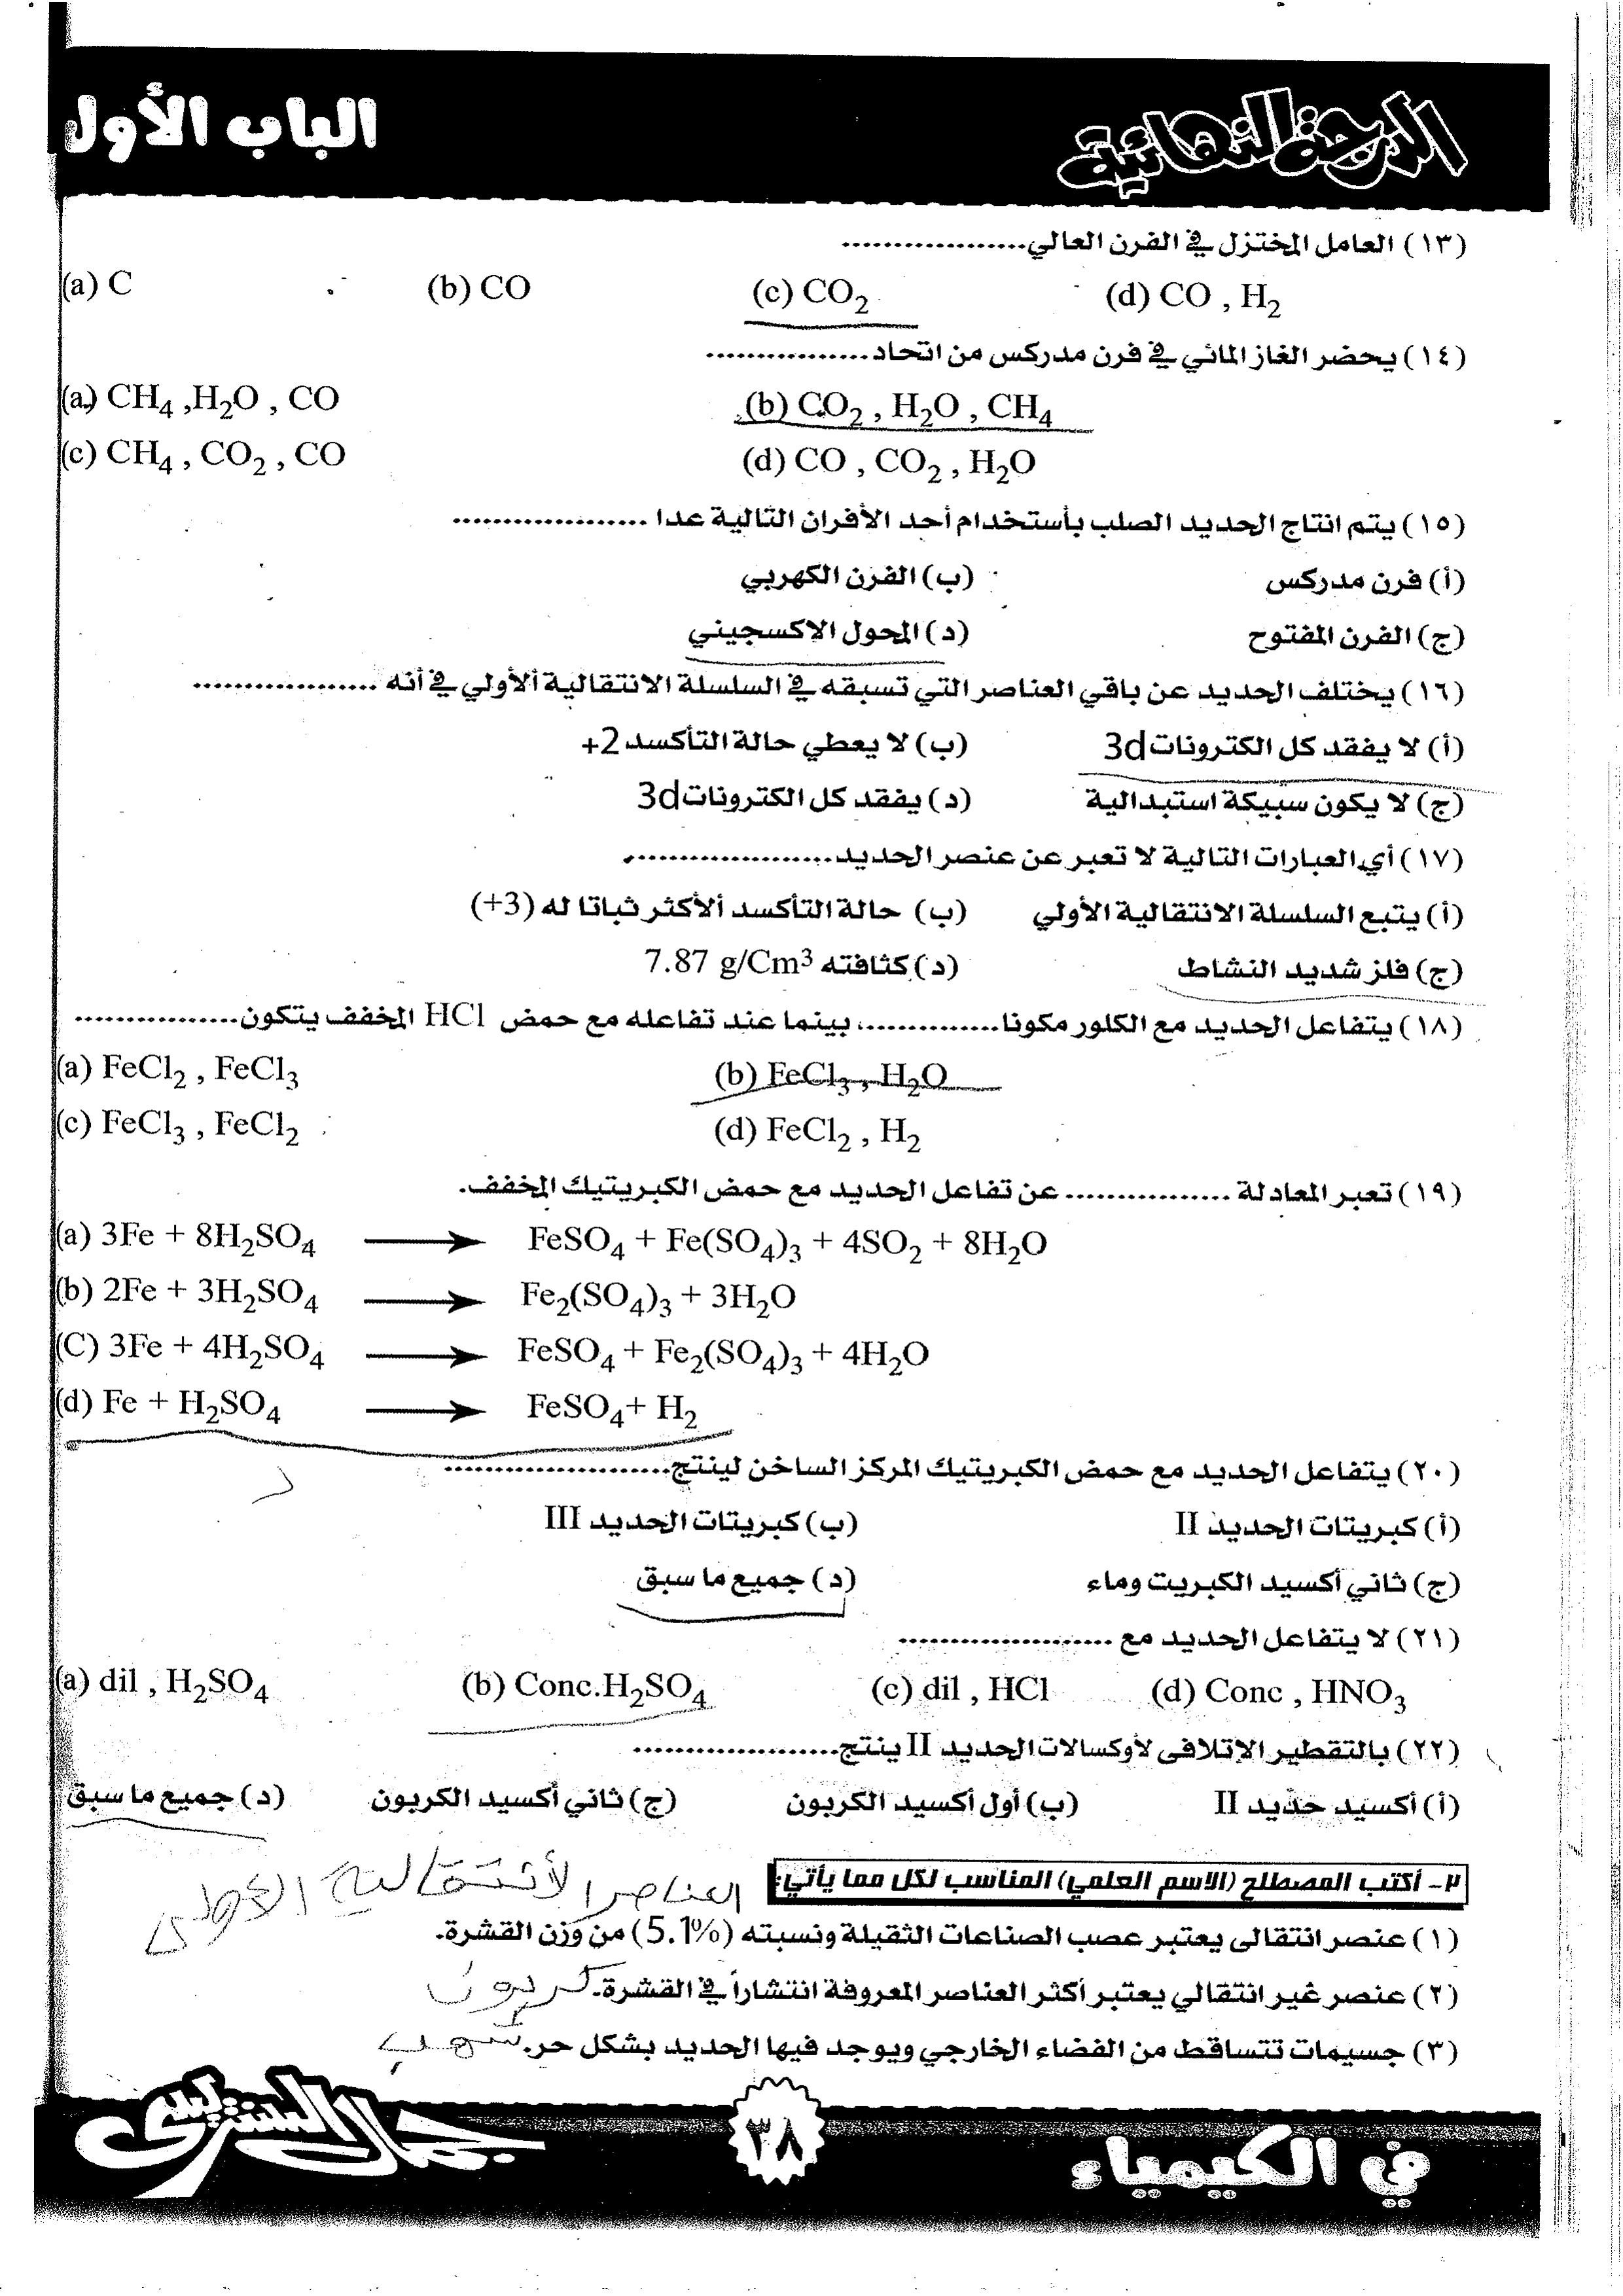 الدرجة النهائية
الباب الأول
(١٣) العامل المختزل في الفرن العالي..................
(a) C (b) CO (c) CO₂ (d) CO , H₂
(١٤) يحضر الغاز المائي في فرن مدركس من اتحاد................
(a) CH₄ ,H₂O , CO (b) CO₂ , H₂O , CH₄
(c) CH₄ , CO₂ , CO (d) CO , CO₂ , H₂O
(١٥) يتم انتاج الحديد الصلب بأستخدام أحد الأفران التالية عدا ...................
(أ) فرن مدركس (ب) الفرن الكهربي
(ج) الفرن المفتوح (د) المحول الاكسجيني
(١٦) يختلف الحديد عن باقي العناصر التي تسبقه في السلسلة الانتقالية ألأولي في أنه ..................
(أ) لا يفقد كل الكترونات 3d (ب) لا يعطي حالة التأكسد 2+
(ج) لا يكون سبيكة استبدالية (د) يفقد كل الكترونات 3d
(١٧) أي العبارات التالية لا تعبر عن عنصر الحديد....................
(أ) يتبع السلسلة الانتقالية الأولي (ب) حالة التأكسد ألأكثر ثباتا له (3+)
(ج) فلز شديد النشاط (د) كثافته 7.87 g/Cm³
(١٨) يتفاعل الحديد مع الكلور مكونا..............، بينما عند تفاعله مع حمض HCl المخفف يتكون................
(a) FeCl₂ , FeCl₃ (b) FeCl₃ , H₂O
(c) FeCl₃ , FeCl₂ (d) FeCl₂ , H₂
(١٩) تعبر المعادلة ................ عن تفاعل الحديد مع حمض الكبريتيك المخفف.
(a) 3Fe + 8H₂SO₄ ⟶ FeSO₄ + Fe(SO₄)₃ + 4SO₂ + 8H₂O
(b) 2Fe + 3H₂SO₄ ⟶ Fe₂(SO₄)₃ + 3H₂O
(C) 3Fe + 4H₂SO₄ ⟶ FeSO₄ + Fe₂(SO₄)₃ + 4H₂O
(d) Fe + H₂SO₄ ⟶ FeSO₄+ H₂
د
(٢٠) يتفاعل الحديد مع حمض الكبريتيك المركز الساخن لينتج......................
(أ) كبريتات الحديد II (ب) كبريتات الحديد III
(ج) ثاني أكسيد الكبريت وماء (د) جميع ما سبق
(٢١) لا يتفاعل الحديد مع .....................
(a) dil , H₂SO₄ (b) Conc.H₂SO₄ (c) dil , HCl (d) Conc , HNO₃
(٢٢) بالتقطير الإتلافى لأوكسالات الحديد II ينتج....................
(أ) أكسيد حديد II (ب) أول أكسيد الكربون (ج) ثاني أكسيد الكربون (د) جميع ما سبق
٢- أكتب المصطلح (الاسم العلمي) المناسب لكل مما يأتي:
العناصر الأنتقالية الأولى
(١) عنصر انتقالى يعتبر عصب الصناعات الثقيلة ونسبته (5.1%) من وزن القشرة.
(٢) عنصر غير انتقالي يعتبر أكثر العناصر المعروفة انتشاراً في القشرة. كربون
(٣) جسيمات تتساقط من الفضاء الخارجي ويوجد فيها الحديد بشكل حر. شهب
في الكيمياء
٣٨